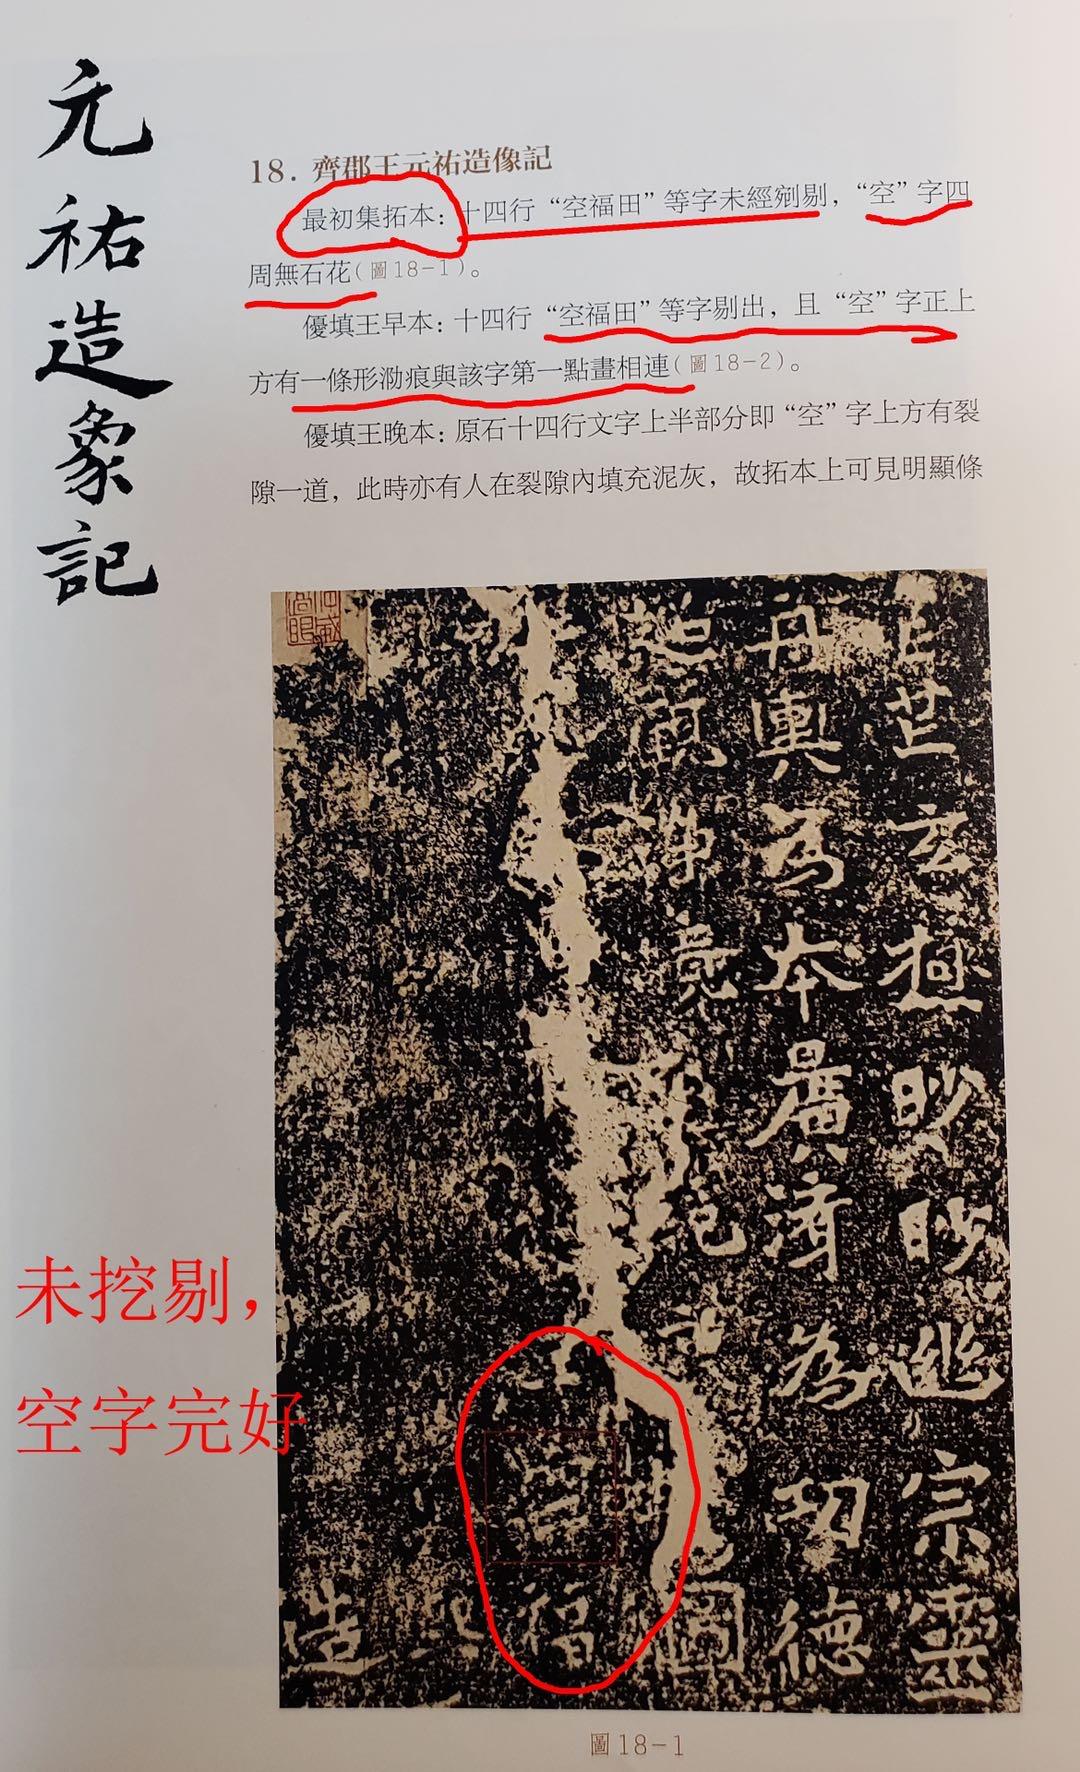 元祐造象記
18. 齊郡王元祐造像記
最初集拓本：十四行“空福田”等字未經剜剔，“空”字四
周無石花（圖18-1）。
優填王早本：十四行“空福田”等字剔出，且“空”字正上
方有一條形泐痕與該字第一點畫相連（圖18-2）。
優填王晚本：原石十四行文字上半部分即“空”字上方有裂
隙一道，此時亦有人在裂隙內填充泥灰，故拓本上可見明顯條
玄極眇眇幽宗靈
丹輿為本廣濟為功德
超觀淨境
圖
王空福
造
未挖剔，
空字完好
圖18-1